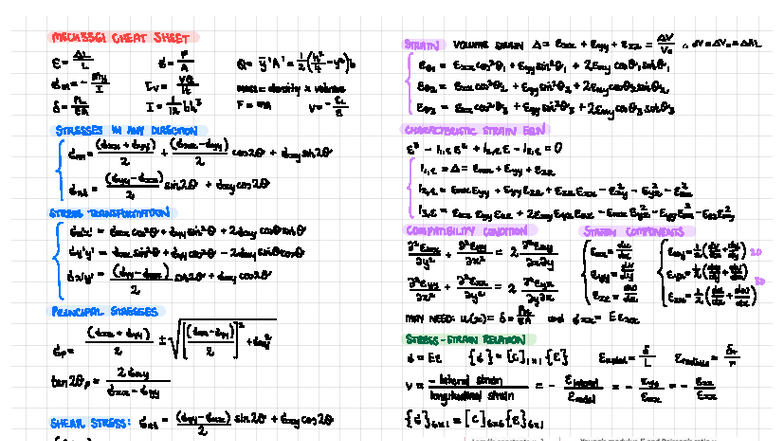 MECH3361 CHEAT SHEET
ε = ΔL/L σ = F/A Q = ȳ'A' = 1/2(h²/4 - y²)b
σxx = - My/I τv = VQ/It mass = density x volume
δ = PL/EA I = 1/12 bh³ F = ma
STRESSES IN ANY DIRECTION
σnn = (σxx + σyy)/2 + (σxx - σyy)/2 cos2θ + σxy sin2θ
σns = (σyy - σxx)/2 sin2θ + σxy cos2θ
STRESS TRANSFORMATION
σx'x' = σxx cos²θ + σyy sin²θ + 2σxy cosθ sinθ
σy'y' = σxx sin²θ + σyy cos²θ - 2σxy sinθ cosθ
σx'y' = (σyy - σxx)/2 sin2θ + σxy cos2θ
PRINCIPAL STRESSES
σp = (σxx + σyy)/2 ± √[(σxx - σyy)/2]² + σxy²
tan2θp = 2σxy/(σxx - σyy)
SHEAR STRESS: σns = (σyy - σxx)/2 sin2θ + σxy cos2θ
STRAIN VOLUME STRAIN Δ = εxx + εyy + εzz = ΔV/V₀
εθ1 = εxx cos²θ1 + εyy sin²θ1 + 2εxy cosθ1 sinθ1
εθ2 = εxx cos²θ2 + εyy sin²θ2 + 2εxy cosθ2 sinθ2
εθ3 = εxx cos²θ3 + εyy sin²θ3 + 2εxy cosθ3 sinθ3
CHARACTERISTIC STRAIN EQN
ε³ - I1,ε ε² + I2,ε ε - I3,ε = 0
I1,ε = Δ = εxx + εyy + εzz
I2,ε = εxx εyy + εyy εzz + εzz εxx - ε²xy - ε²yz - ε²zx
I3,ε = εxx εyy εzz + 2εxy εyz εzx - εxx ε²yz - εyy ε²zx - εzz ε²xy
COMPATIBILITY CONDITION STRAIN COMPONENTS
∂²εxx/∂y² + ∂²εyy/∂x² = 2 ∂²εxy/∂x∂y εxx = du/dx εxy = 1/2(du/dy + dv/dx) 2D
εyy = dv/dy
εzz = dw/dz 3D
MAY NEED: u(x) = δ = PL/EA and σxx = Eεxx
STRESS-STRAIN RELATION
σ = Eε {σ} = [C] {ε} εaxial = δ/L εradius = δr/r
ν = - lateral strain/longitudinal strain = - εlateral/εaxial = - εyy/εxx = - εzz/εxx
{σ}6x1 = [C]6x6 {ε}6x1